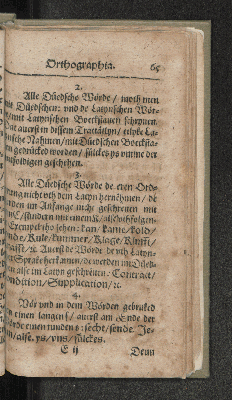 Orthographia. 65
2.
Alle Düedsche Wörde / moth men
mit Düedschen: und de Latynschen Wör-
mit Latynischen Boeckstauen schryuen.
Dat auerst in dissem Tractätlyn / etlyke La-
tinische Nahmen / mit Düedschen Boecksta-
uen gedrücked worden / sülckes ys umme der
geschehen.
3.
Alle Düedsche Wörde de eren Ord-
nicht uth dem Latyn hernähmen / de
im Anfange nicht geschreuen mit
sündern mit einem K / alse volgen-
Exempel tho sehen: kan / kame / kold /
Kule / kummer / Klage / Klufft /
Auerst de Wörde de uth Latyn-
Sprake herkamen / de werden im Düed-
alse im Latyn geschreuen: Contract /
Condition / Supplication / ꝛc.
4.
Vör und in dem Wörden gebruked
einen langen ſ / auerst am Ende der
Wörde einen runden s: secht / sende. Je-
alse, ys / uns / sülckes.
E ij Denn